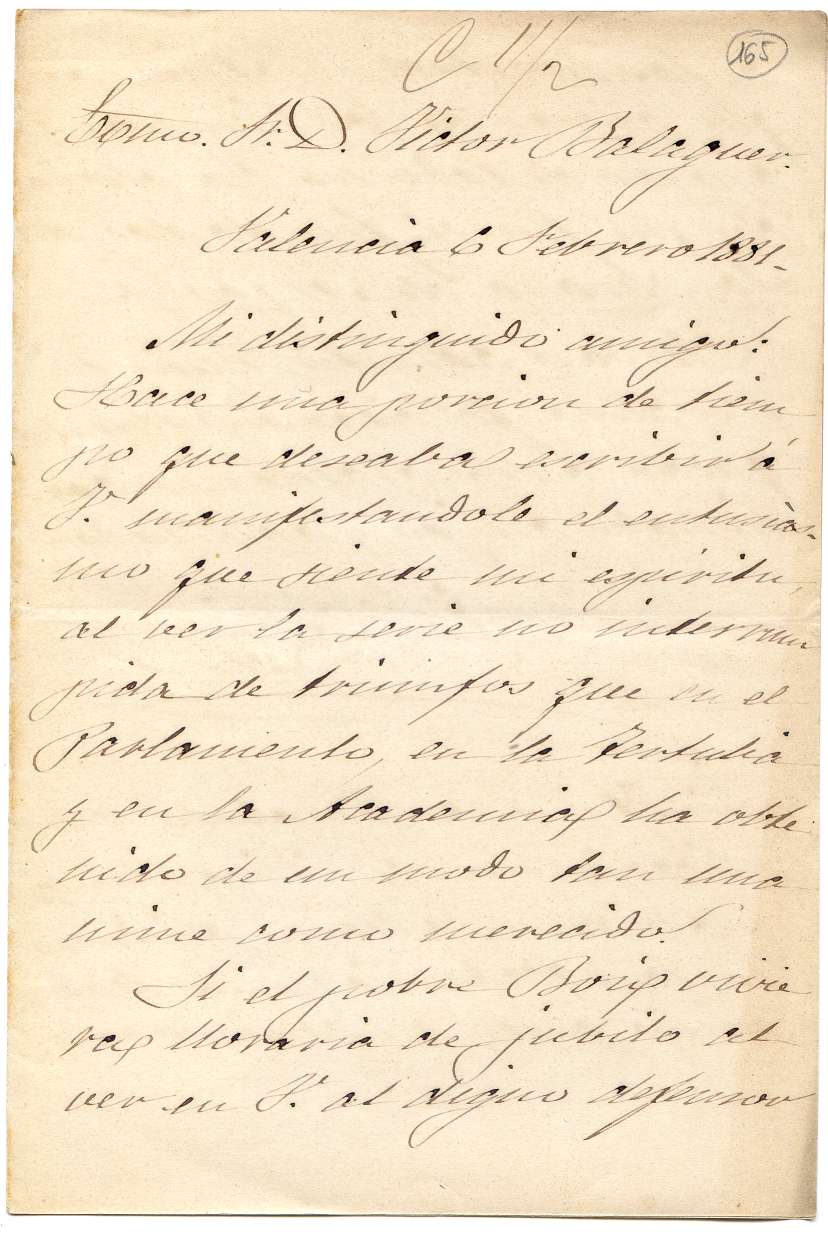 C 11/2
165
Excmo. Sr. D. Victor Balaguer.
Valencia 6 Febrero 1881-
Mi distinguido amigo:
Hace una porcion de tiem
po que deseaba escribir á
V. manifestandole el entusias-
mo que siente mi espiritu,
al ver la serie no interrum
pida de triunfos que en el
Parlamento, en la Tertulia
y en la Academia ha obte
nido de un modo tan una
nime como merecido.
Si el pobre Boix vivie
ra lloraria de jubilo al
ver en V. al digno defensor